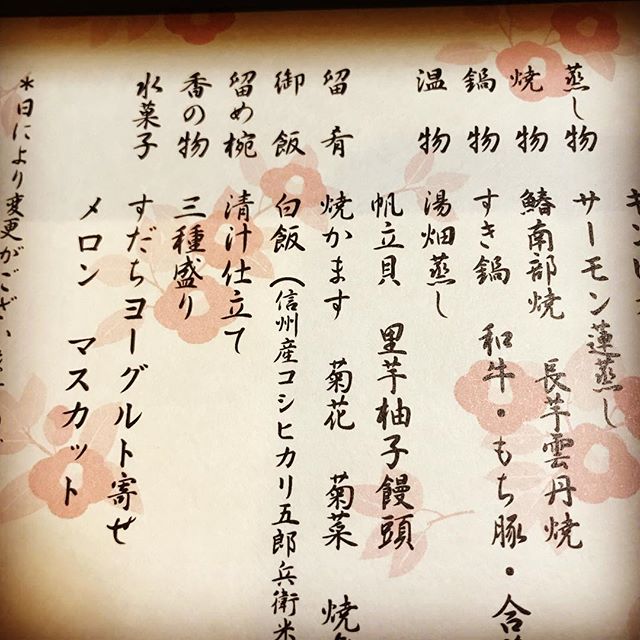 蒸し物 サーモン蓮蒸し
焼物 鰆南部焼 長芋雲丹焼
鍋物 すき鍋 和牛・もち豚・合
温物 湯畑蒸し
帆立貝 里芋柚子饅頭
留肴 焼かます 菊花 菊菜 焼
御飯 白飯(信州産コシヒカリ五郎兵衛米
留め椀 清汁仕立て
香の物 三種盛り
水菓子 すだちヨーグルト寄せ
メロン マスカット
*日により変更がござい